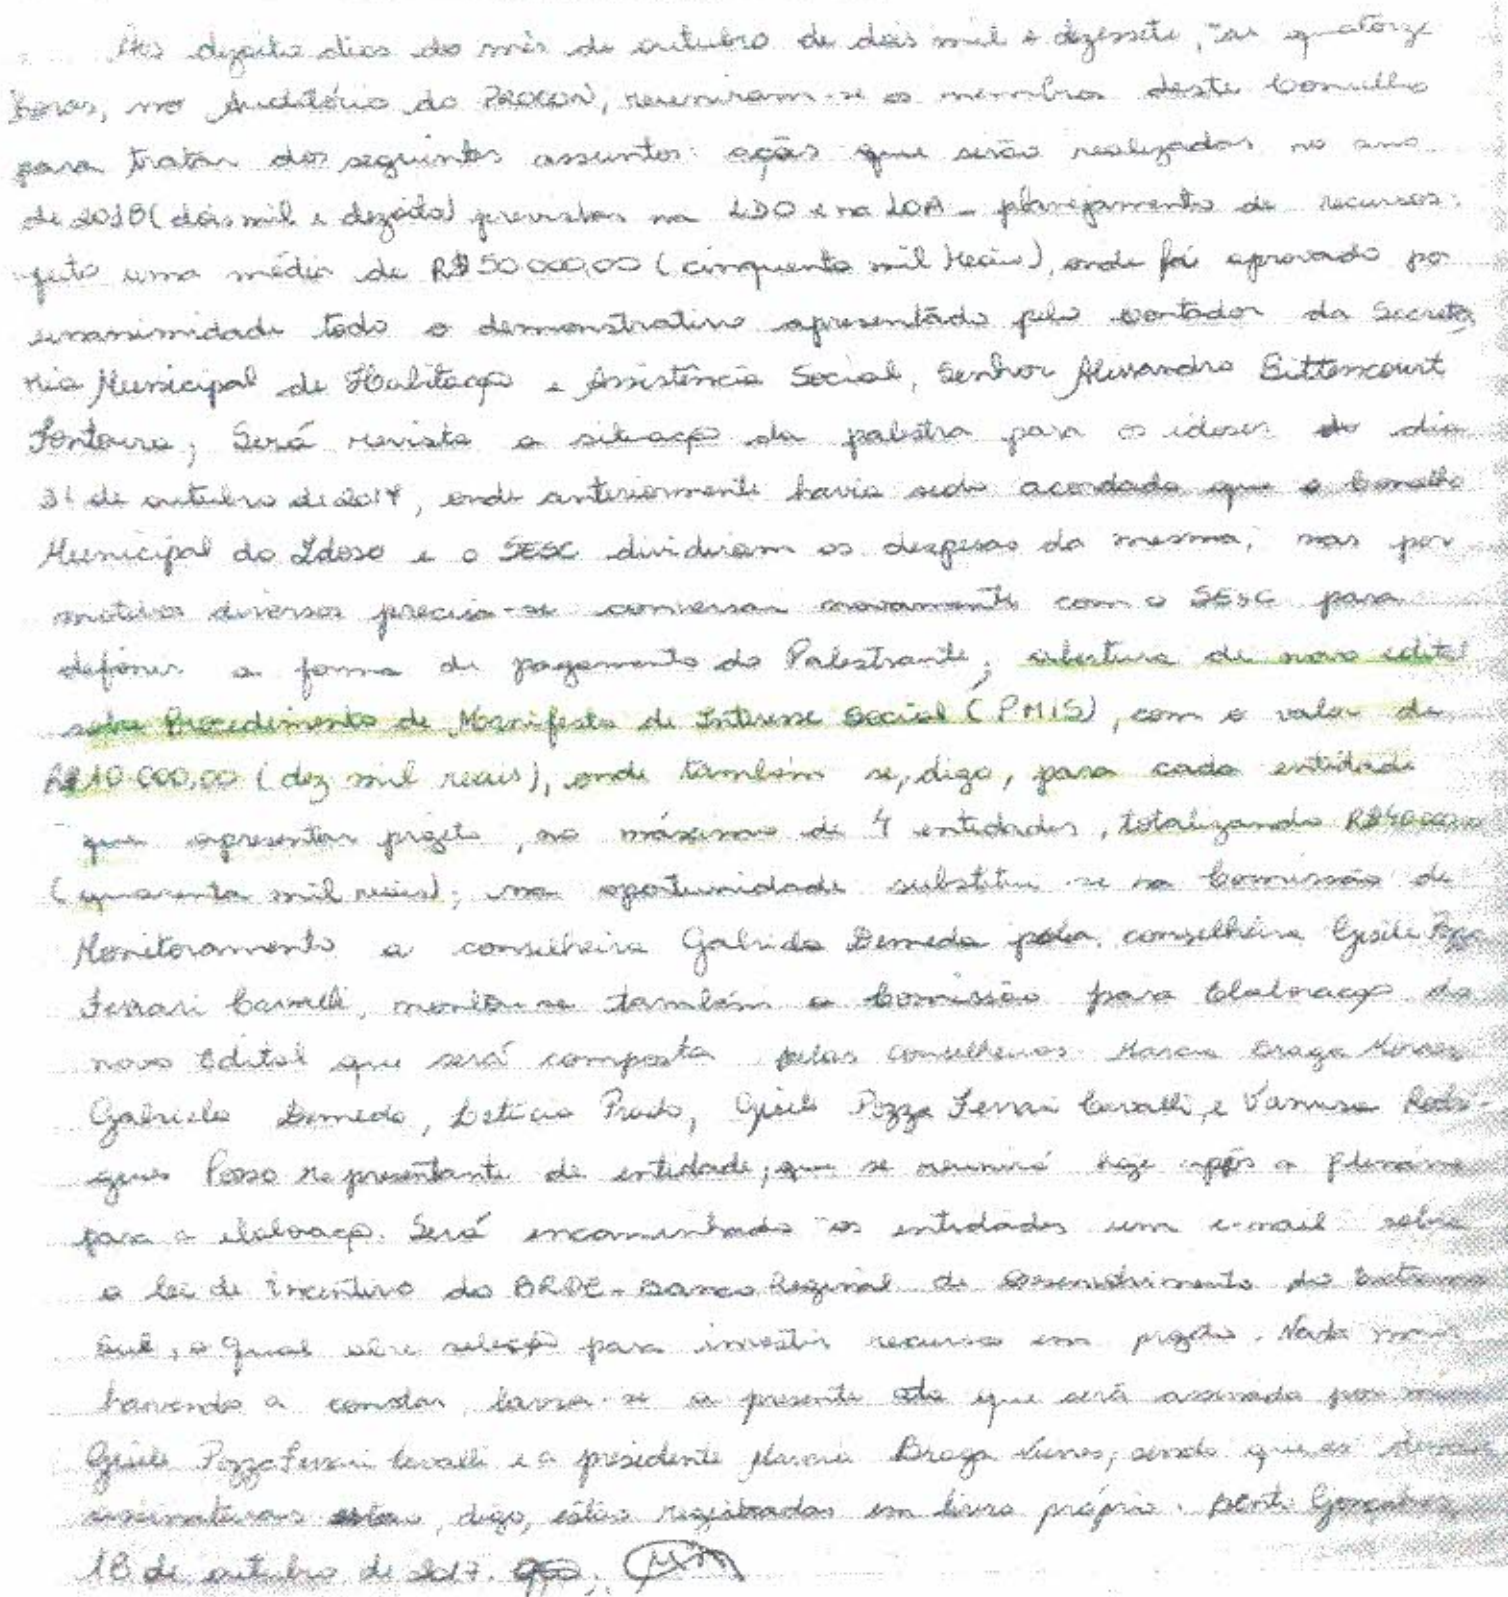 Aos dezoito dias do mês de outubro de dois mil e dezessete, às quatorze
horas, no Auditório do PROCON, reuniram-se os membros deste Conselho
para tratar dos seguintes assuntos: ações que serão realizadas no ano
de 2018 (dois mil e dezoito) previstas na LDO e na LOA - planejamento de recursos:
feito uma média de R$ 50.000,00 (cinquenta mil reais), onde foi aprovado por
unanimidade todo o demonstrativo apresentado pelo contador da Secreta
ria Municipal de Habitação e Assistência Social, Senhor Alissandro Bittencourt
; Será revista a situação da palestra para os idosos do dia
31 de outubro de 2017, onde anteriormente havia sido acordado que o Conselho
Municipal do Idoso e o SESC dividiriam as despesas da mesma, mas por
motivos diversos precisa-se conversar novamente com o SESC para
definir a forma de pagamento do Palestrante; abertura de novo edital
sobre Procedimento de Manifesto de Interesse Social (PMIS), com o valor de
R$ 10.000,00 (dez mil reais), onde também se, digo, para cada entidade
que apresentar projeto, no máximo de 4 entidades, totalizando R$40.000,00
(quarenta mil reais); na oportunidade substitui-se na Comissão de
Monitoramento a conselheira Gabriela Demeda pela conselheira Gisele Pozza
Ferrari Cavalli, também a Comissão para Elaboração do
novo Edital que será composta pelas Conselheiras Marcia Braga
Gabriela Demeda, Letícia Prado, Gisele Pozza Ferrari Cavalli, e Vanusa Rodri-
gues Posso representante de entidade; que se reunirá hoje após a plenária
para a elaboração. Será encaminhado as entidades um e-mail sobre
a lei de Incentivo do BRDE - Banco Regional de Desenvolvimento do Extremo
Sul, o qual abre seleção para investir recurso em projeto. Nada mais
havendo a constar, lavra-se a presente ata que será assinada por mim
Gisele Pozza Ferrari Cavalli e a presidente Marcia Braga Nunes, sendo que as demais
assinaturas, digo, estão registradas em livro próprio. Bento Gonçalves,
18 de outubro de 2017.